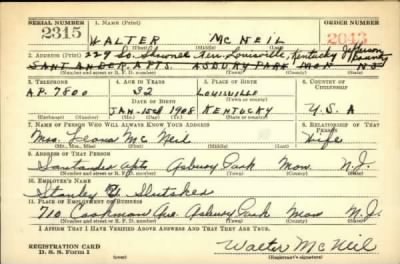 SERIAL NUMBER 1. NAME (Print) ORDER NUMBER
2315 WALTER MC NEIL 2043
(First) (Middle) (Last)
2. ADDRESS (Print) 229 So. Shawnee Ter. Louisville, Kentucky Jefferson County
SANTANDER APTS. ASBURY PARK MON N.J.
(Number and street or R. F. D. number) (Town) (County) (State)
3. TELEPHONE 4. AGE IN YEARS 5. PLACE OF BIRTH 6. COUNTRY OF CITIZENSHIP
A.P. 7800 32 LOUISVILLE
DATE OF BIRTH (Town or county)
JAN. 15th 1908 KENTUCKY U.S.A
(Exchange) (Number) (Mo.) (Day) (Yr.) (State or country)
7. NAME OF PERSON WHO WILL ALWAYS KNOW YOUR ADDRESS 8. RELATIONSHIP OF THAT PERSON
Mrs. Leona Mc Neil Wife
(Mr., Mrs., Miss) (First) (Middle) (Last)
9. ADDRESS OF THAT PERSON
Santander Apts Asbury Park Mon. N.J.
(Number and street or R. F. D. number) (Town) (County) (State)
10. EMPLOYER'S NAME
Stanley
11. PLACE OF EMPLOYMENT OR BUSINESS
710 Cookman Ave. Asbury Park Mon N.J.
(Number and street or R. F. D. number) (Town) (County) (State)
I AFFIRM THAT I HAVE VERIFIED ABOVE ANSWERS AND THAT THEY ARE TRUE.
REGISTRATION CARD
D. S. S. Form 1 Walter McNeil
(Registrant's signature)